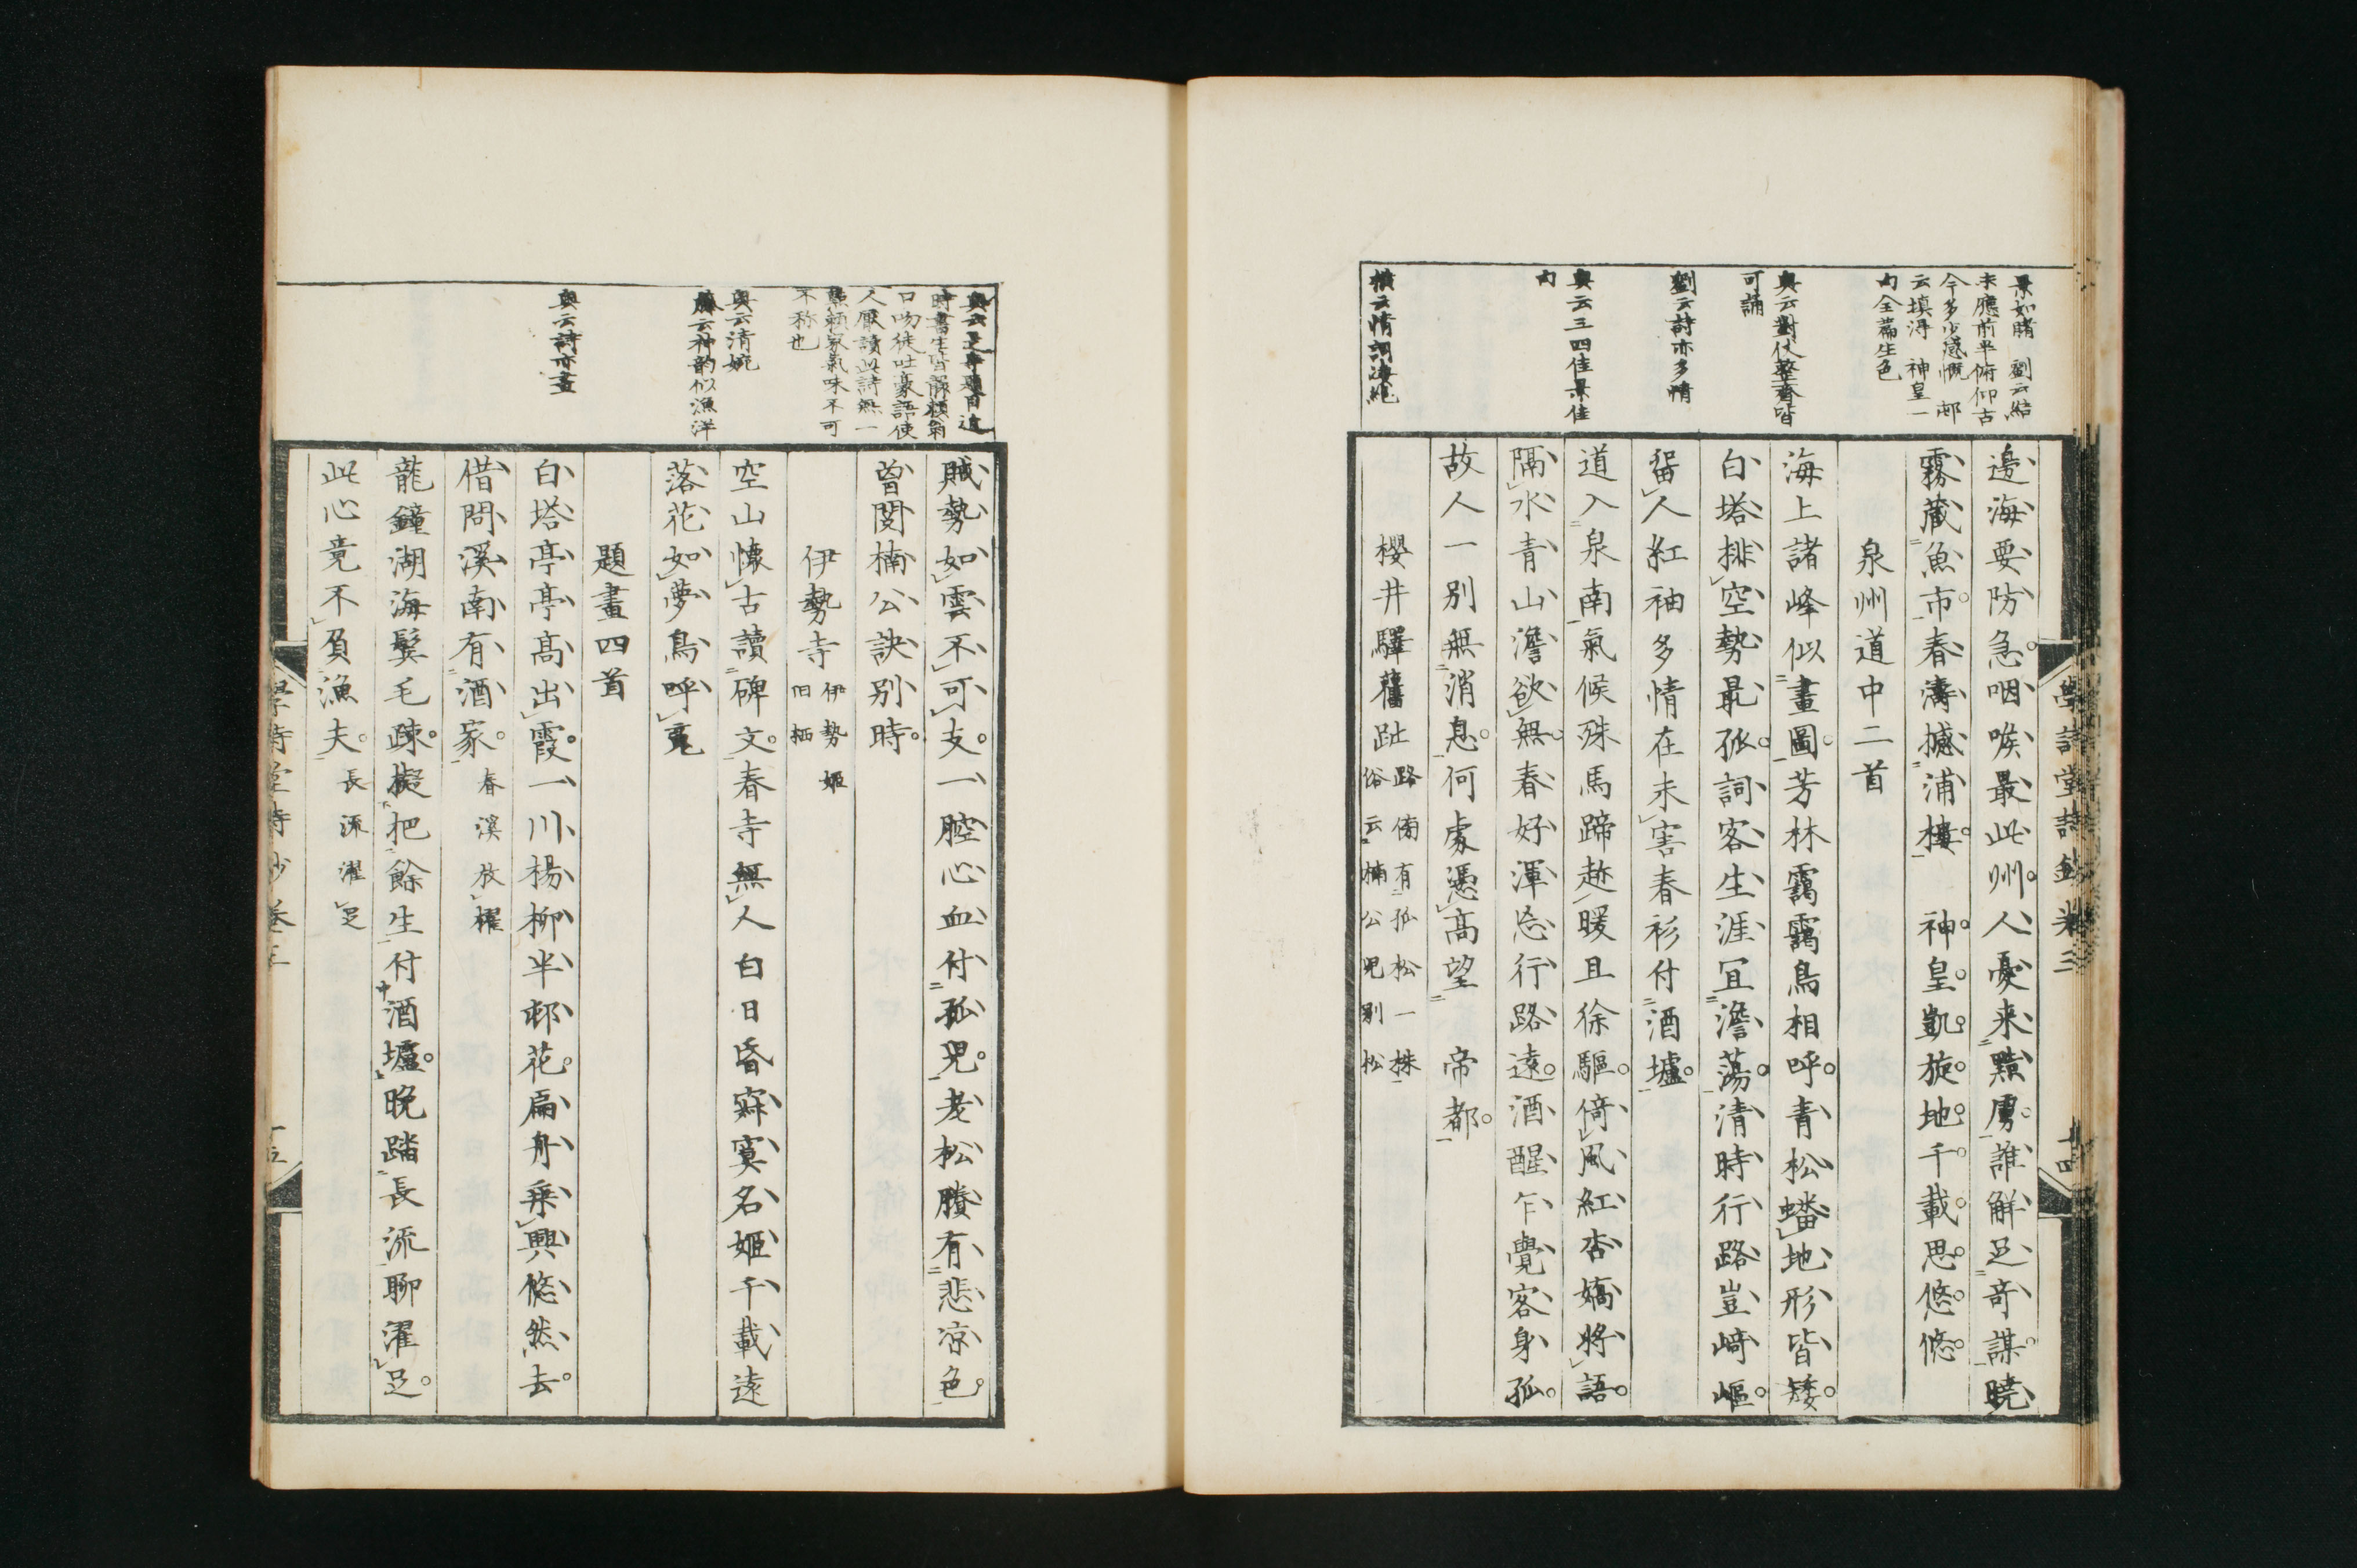 景如睹　劉云結
末應前半俯仰古
今多少感慨　邨
云填得　神皇一
句全篇生色
奥云對仗整齊皆
可誦
劉云詩亦多情
奥云三四佳景佳
句
橫云情詞凄絶
邊海要防急咽喉最此州人憂来黠虜誰解足奇謀曉
霧藏魚市春濤撼浦樓　神皇凱旋地千載思悠悠
泉州道中二首
海上諸峰似畫圖芳林靄靄鳥相呼青松蟠地形皆矮
白塔排空勢最孤詞客生涯宜澹蕩清時行路豈崎嶇
留人紅袖多情在未害春衫付酒壚
道入泉南氣候殊馬蹄趂暖且徐驅倚風紅杏嬌將語
隔水青山澹欲無春好渾忘行路遠酒醒乍覺客身孤
故人一別無消息何處憑高望　帝都
櫻井驛舊趾
路傍有孤松一株
俗云楠公児別松
學詩堂詩鈔　卷三
十四
時書生皆解頼翁
口吻徒吐豪語使
人厭讀此詩無一
點頼家氣味不可
不称也
奥云清婉
藤云神韵似漁洋
奥云詩亦畫
賊勢如雲不可支一腔心血付孤児老松賸有悲凉色
曽閲楠公訣別時
伊勢寺
伊勢姬
旧栖
空山懐古讀碑文春寺無人白日昏寂寞名姬千載遠
落花如夢鳥呼寃
題畫四首
白塔亭亭高出霞一川楊柳半邨花扁舟乗興悠然去
借問溪南有酒家　春溪放櫂
龍鐘湖海鬂毛疎擬把餘生付酒壚晚踏長流聊濯足
此心竟不負漁夫　長流濯足
學詩堂詩鈔　卷三
十五